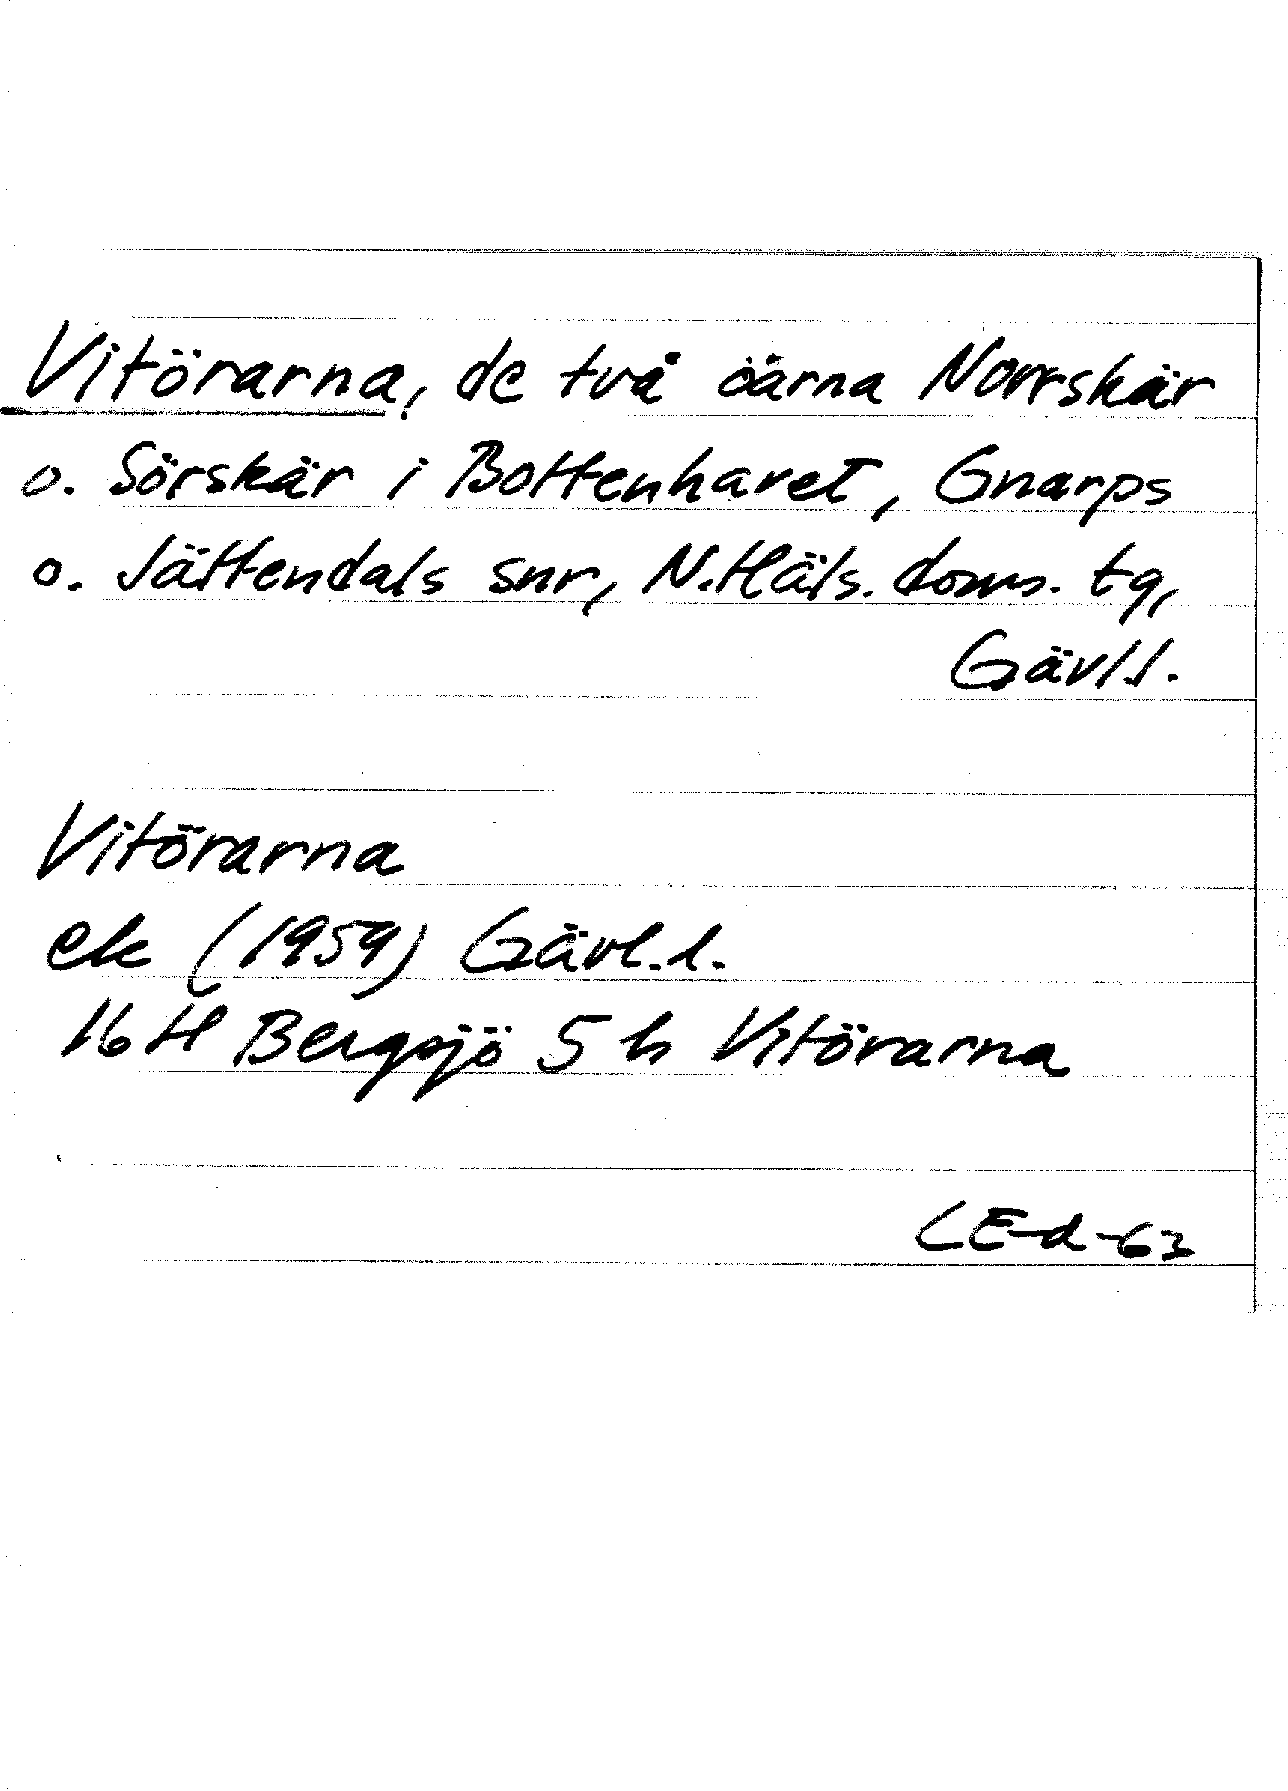 Vitörarna, de två öarna Norrskär
o. Sörskär i Bottenhavet, Gnarps
o. Jättendals snr, N.Häls. doms. tg,
Gävl.l.
Vitörarna
ek (1959) Gävl.l.
16 H Bergsjö 5 h Vitörarna
LE-d-63